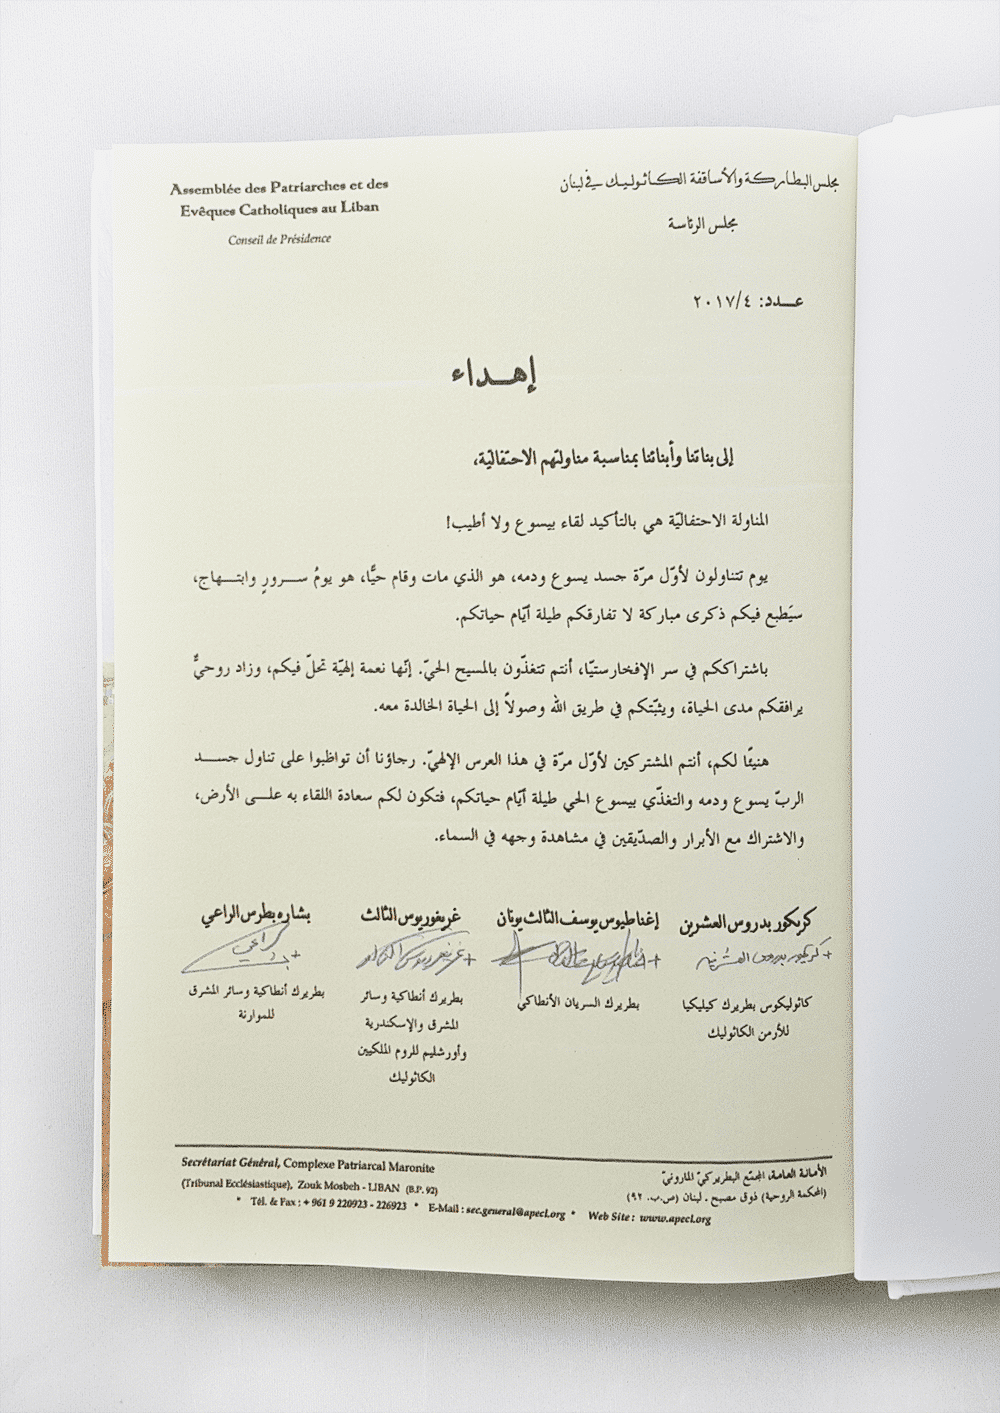 Assemblée des Patriarches et des
Evêques Catholiques au Liban
Conseil de Présidence
مجلس البطاركة والأساقفة الكاثوليك في لبنان
مجلس الرئاسة
عدد: ٢٠١٧/٤
إهداء
إلى بناتنا وأبنائنا بمناسبة مناولتهم الاحتفاليّة،
المناولة الاحتفاليّة هي بالتأكيد لقاء بيسوع ولا أطيب!
يوم تتناولون لأوّل مرّة جسد يسوع ودمه، هو الذي مات وقام حيًّا، هو يومُ سرورٍ وابتهاج،
سيَطبع فيكم ذكرى مباركة لا تفارقكم طيلة أيّام حياتكم.
باشتراككم في سر الإفخارستيّا، أنتم تتغذّون بالمسيح الحيّ. إنّها نعمة إلهيّة تحلّ فيكم، وزاد روحيٌّ
يرافقكم مدى الحياة، ويثبّتكم في طريق الله وصولاً إلى الحياة الخالدة معه.
هنيئًا لكم، أنتم المشتركين لأوّل مرّة في هذا العرس الإلهيّ. رجاؤنا أن تواظبوا على تناول جسد
الربّ يسوع ودمه والتغذّي بيسوع الحي طيلة أيّام حياتكم، فتكون لكم سعادة اللقاء به على الأرض،
والاشتراك مع الأبرار والصدّيقين في مشاهدة وجهه في السماء.
كريكور بدروس العشرين
+ كريكور بدروس العشرين
كاثوليكوس بطريرك كيليكيا
للأرمن الكاثوليك
إغناطيوس يوسف الثالث يونان
بطريرك السريان الأنطاكي
غريغوريوس الثالث
+ غريغوريوس الثالث
بطريرك أنطاكية وسائر
المشرق والإسكندرية
وأورشليم للروم الملكيين
الكاثوليك
بشاره بطرس الراعي
بطريرك أنطاكية وسائر المشرق
للموارنة
Secrétariat Général, Complexe Patriarcal Maronite
(Tribunal Ecclésiastique), Zouk Mosbeh - LIBAN (B.P. 92)
الأمانة العامة، المجتمع البطريركيّ المارونيّ
(المحكمة الروحية) ذوق مصبح - لبنان (ص.ب. ٩٢)
* Tél. & Fax : + 961 9 220923 - 226923 * E-Mail : sec.general@apecl.org * Web Site : www.apecl.org